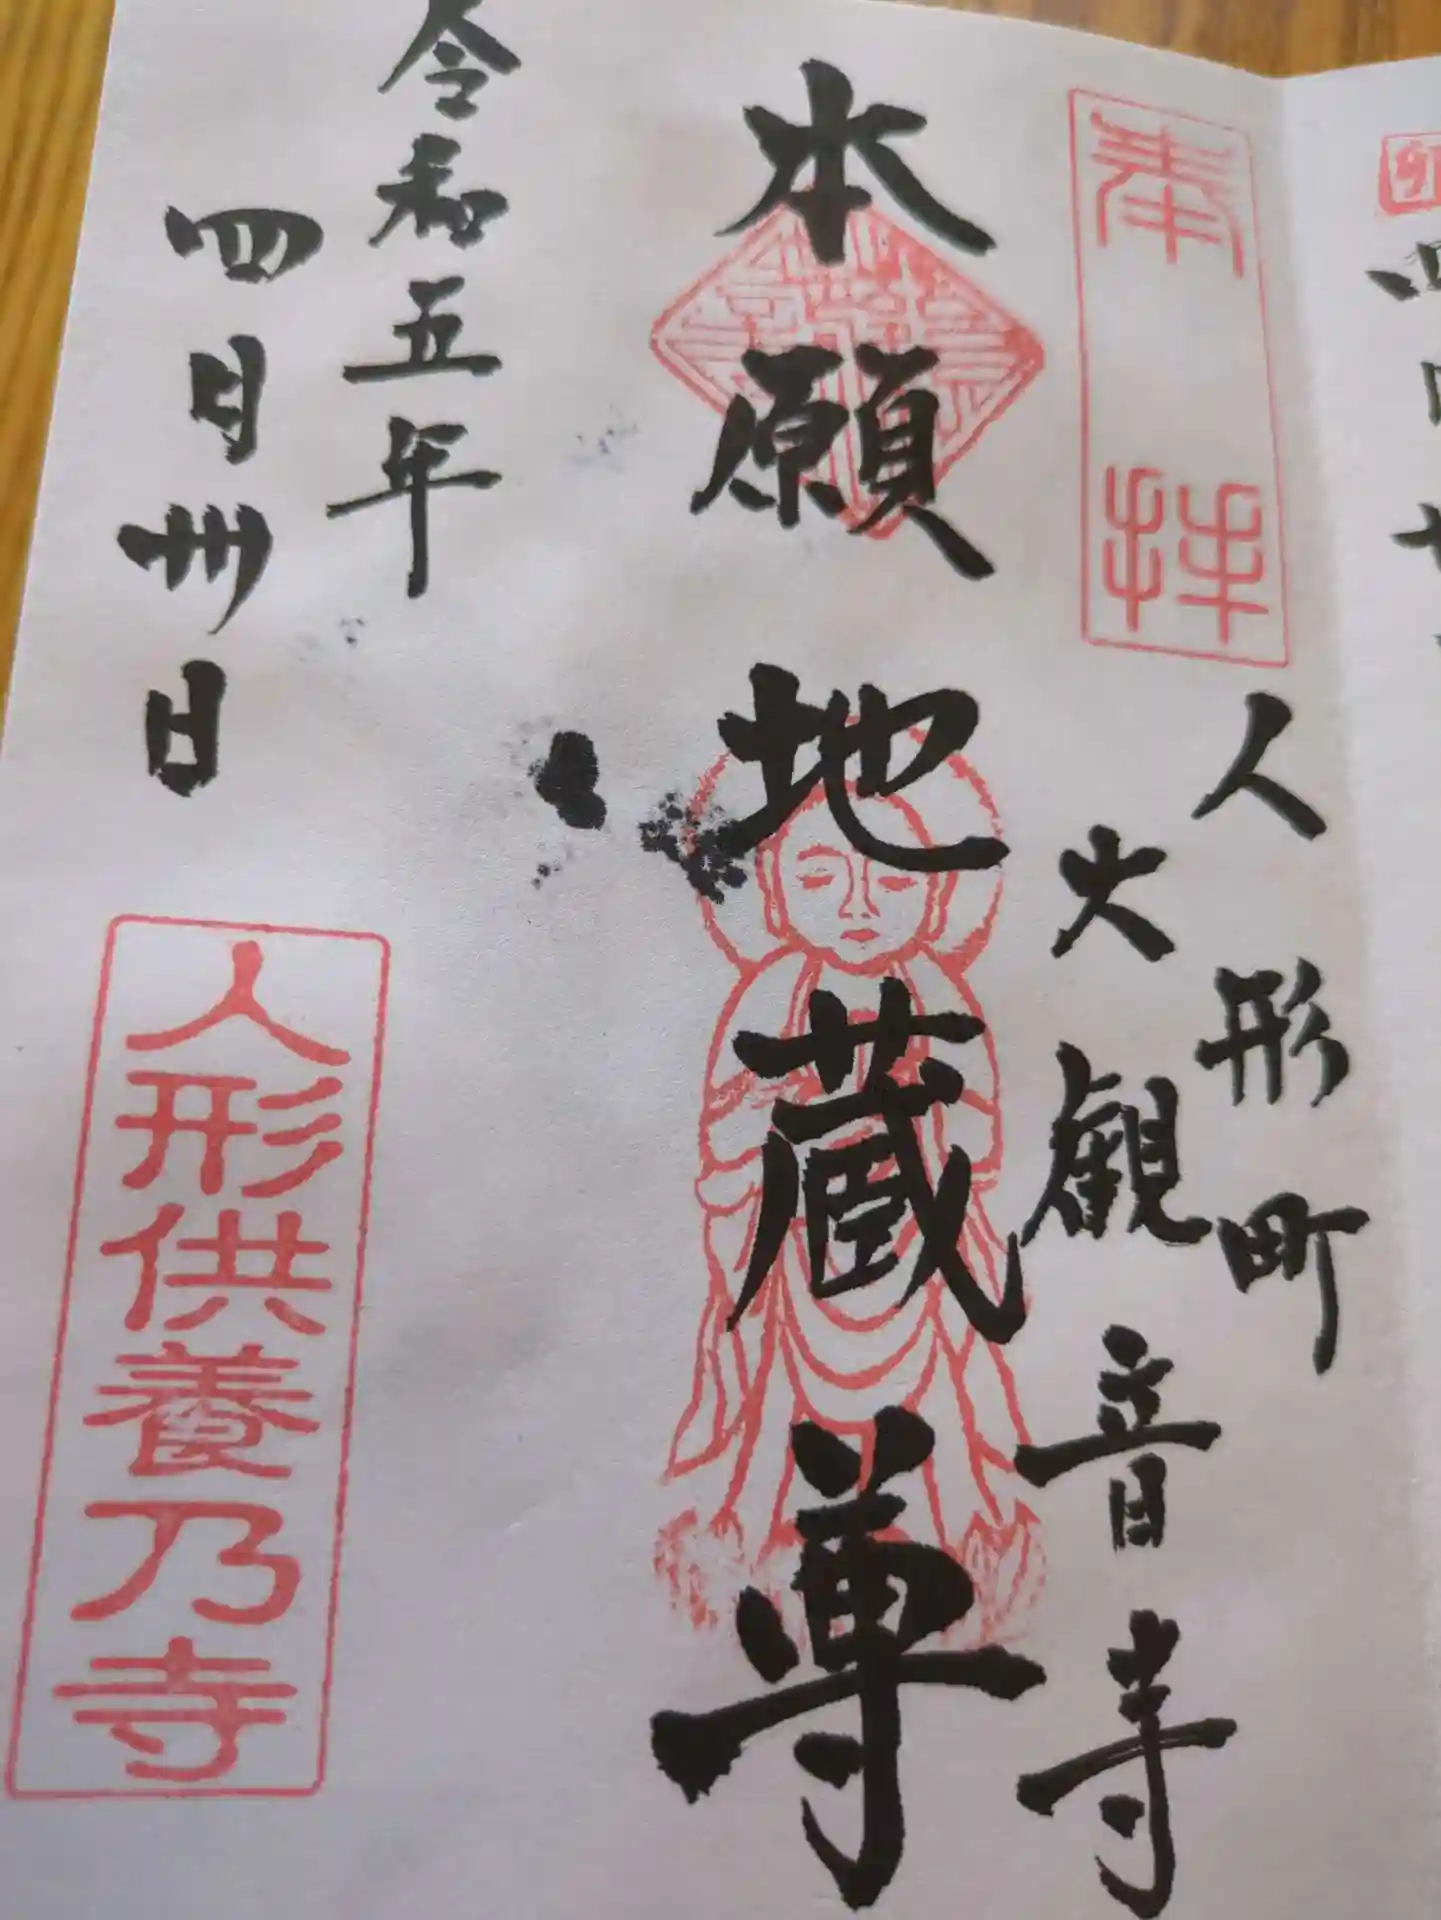 奉拝
人形町
大観音寺
本願地蔵尊
令和五年
四月卅日
人形供養乃寺